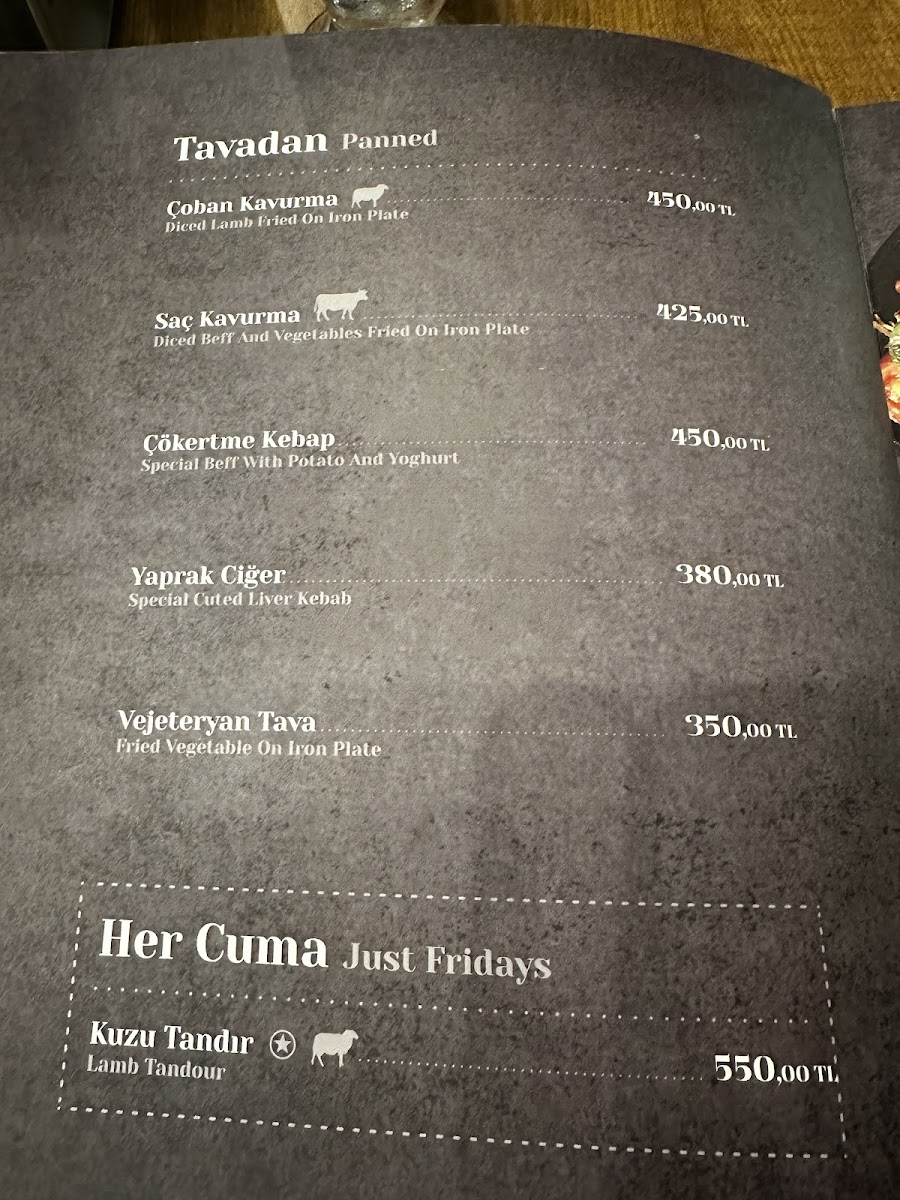 Tavadan Panned
Çoban Kavurma 450,00 TL
Diced Lamb Fried On Iron Plate
Saç Kavurma 425,00 TL
Diced Beff And Vegetables Fried On Iron Plate
Çökertme Kebap 450,00 TL
Special Beff With Potato And Yoghurt
Yaprak Ciğer 380,00 TL
Special Cuted Liver Kebab
Vejeteryan Tava 350,00 TL
Fried Vegetable On Iron Plate
Her Cuma Just Fridays
Kuzu Tandır 550,00 TL
Lamb Tandour